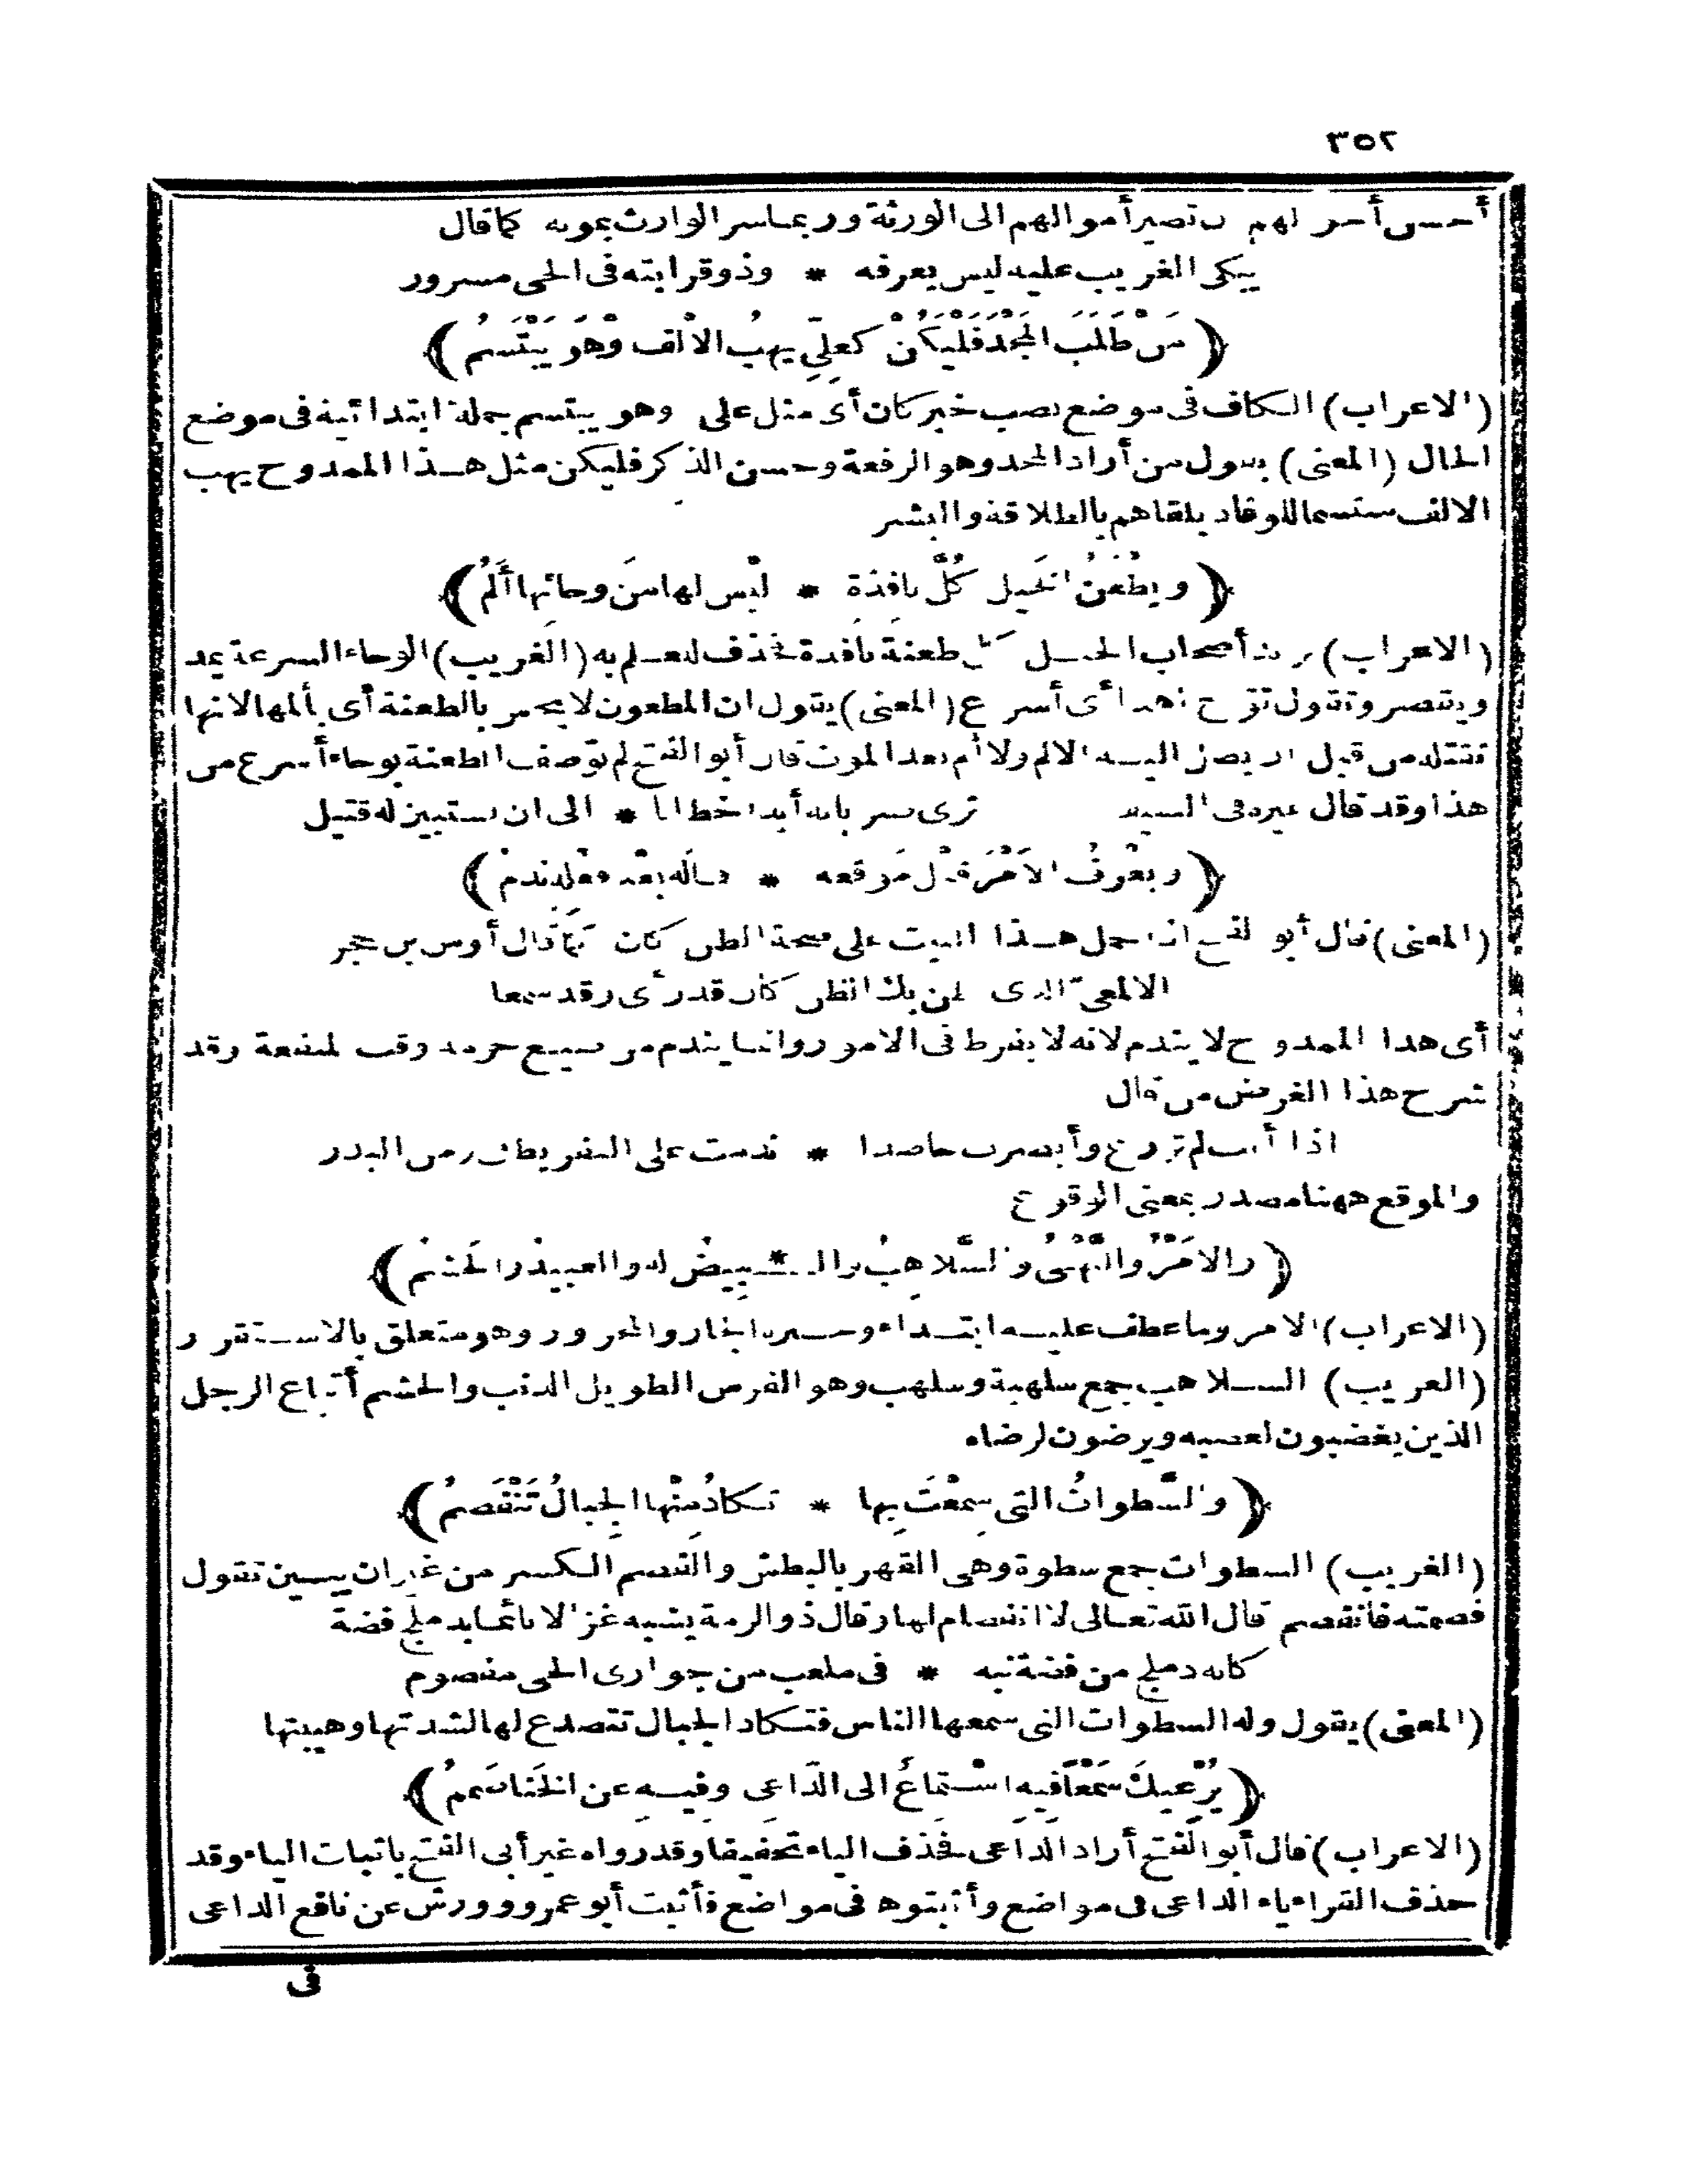 ٣٥٢
أحسن أحوالهم أن تصير أموالهم الى الورثة وربما سر الوارث بموته كما قال
يبكى الغريب عليه ليس يعرفه * وذو قرابته فى الحى مسرور
(مَنْ طَلَبَ المَجْدَ فَلْيَكُنْ كَعَلِيٍّ يَهَبُ الاَلْفَ وَهْوَ يَبْتَسِمُ)
(الاعراب) الكاف فى موضع نصب خبر كان أى مثل على وهو يبتسم جملة ابتدائية فى موضع
الحال (المعنى) يقول من أراد المجد وهو الرفعة وحسن الذكر فليكن مثل هذا الممدوح يهب
الالف مبتسما للوفاد يلقاهم بالطلاقة والبشر
(ويَطْعَنُ الخَيلَ كُلَّ نافِذَةٍ * لَيْسَ لها مِنَ وحائها أَلَمُ)
(الاعراب) يريد أصحاب الخيل كل طعنة نافذة فحذف للعلم به (الغريب) الوحاء السرعة يمد
ويقصر وتقول توح هذا أى أسرع (المعنى) يقول ان المطعون لا يحس بالطعنة أى بألمها لانها
تقتله من قبل أن يصل اليه الالم ولا ألم بعد الموت قال أبو الفتح لم توصف الطعنة بوحاء أسرع من
هذا وقد قال غيره فى السيف ترى ضرباته أبدا خطايا * الى ان يستبين له قتيل
(ويَعْرِفُ الاَمْرَ قَبْلَ مَوقعه * فماله بَعْدَ فعله نَدَمُ)
(المعنى) قال أبو الفتح اذا حمل هذا البيت على صحة الظن كان كما قال أوس بن حجر
الالمعىّ الذى يظن بك الظن كأن قد رأى وقد سمعا
أى هذا الممدوح لا يندم لانه لا يفرط فى الامور وانما يندم من ضيع حزمه وقت المنفعة وقد
شرح هذا الغرض من قال
اذا أنت لم تزرع وأبصرت حاصدا * ندمت على التفريط فى زمن البذر
والموقع ههنا مصدر بمعنى الوقوع
(والاَمْرُ والنَّهْىُ والسَّلاهِبُ والـ * ـبِيضُ له والعبيدُ والحَشَمُ)
(الاعراب) الامر وما عطف عليه ابتداء وخبره الجار والمجرور وهو متعلق بالاستقرار
(الغريب) السلاهب جمع سلهبة وسلهب وهو الفرس الطويل الذنب والحشم أتباع الرجل
الذين يغضبون لغضبه ويرضون لرضاه
(والسَّطَواتُ التى سَمِعْتَ بِها * تَكادُ مِنْها الجِبالُ تَنْقَصِمُ)
(الغريب) السطوات جمع سطوة وهى القهر بالبطش والقصم الكسر من غير ان يبين تقول
فصمته فانفصم قال الله تعالى لا انفصام لها وقال ذو الرمة يشبه غزالا نائما بدملج فضة
كانه دملج من فضة نبه * فى ملعب من جوارى الحى مفصوم
(المعنى) يقول وله السطوات التى سمعها الناس فتكاد الجبال تتصدع لها لشدتها وهيبتها
(يُرْعِيكَ سَمْعًا فِيهِ اسْتِماعٌ الى الدَّاعى وفيه عن الخَنا صَمَمُ)
(الاعراب) قال أبو الفتح أراد الداعى فحذف الياء تخفيفا وقد رواه غير أبى الفتح باثبات الياء وقد
حذف القراء ياء الداعى فى مواضع وأثبتوها فى مواضع فأثبت أبو عمرو وورش عن نافع الداعى
فى